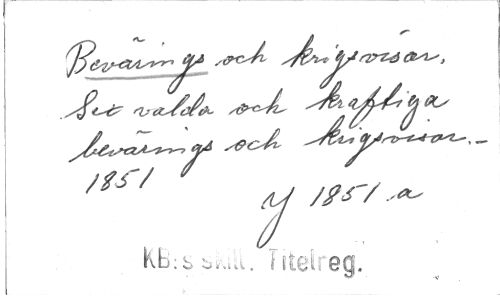 Bevärings och krigsvisor.
Sex valda och kraftiga
bevärings och krigsvisor._
1851
Y 1851 a
KB:s skill. Titelreg.